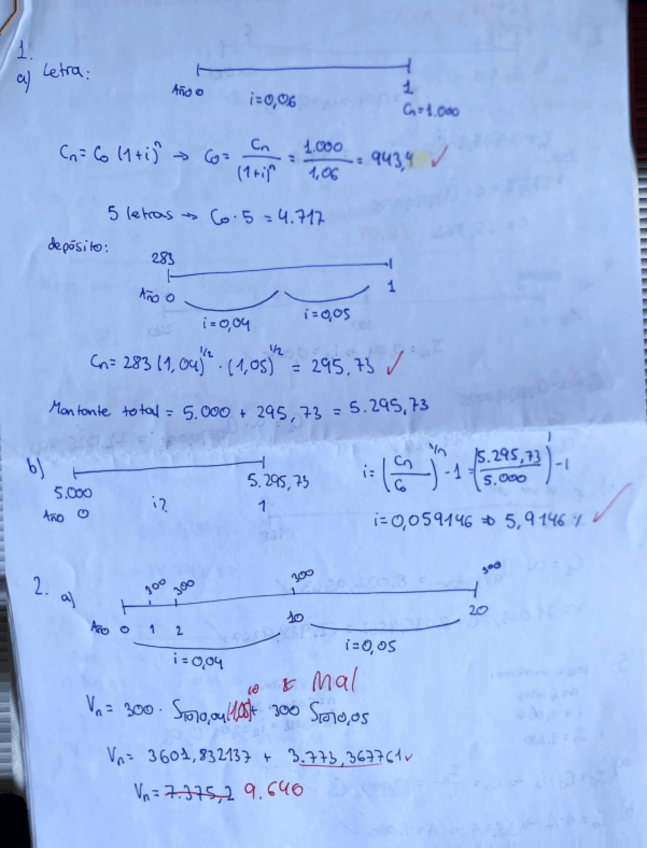 1.
a) Letra:
Año 0 i=0,06 1
Cn=1.000
Cn = Co (1+i)^n → Co = Cn/(1+i)^n = 1.000/1,06 = 943,4 ✓
5 letras → Co · 5 = 4.717
depósito:
283
Año 0 1
i=0,04 i=0,05
Cn = 283 (1,04)^1/2 · (1,05)^1/2 = 295,73 ✓
Montante total = 5.000 + 295,73 = 5.295,73
b) 5.000 5.295,73 i = (Cn/Co)^1/n - 1 = (5.295,73/5.000)^1 - 1
Año 0 i? 1 i=0,059146 ⇒ 5,9146 % ✓
2. a) 300 300 300 300
Año 0 1 2 10 20
i=0,04 i=0,05
Mal
Vn = 300 · S10|0,04 (1,05)^10 + 300 S10|0,05
Vn = 3601,832137 + 3.773,367761 ✓
Vn = 7.375,2 9.640